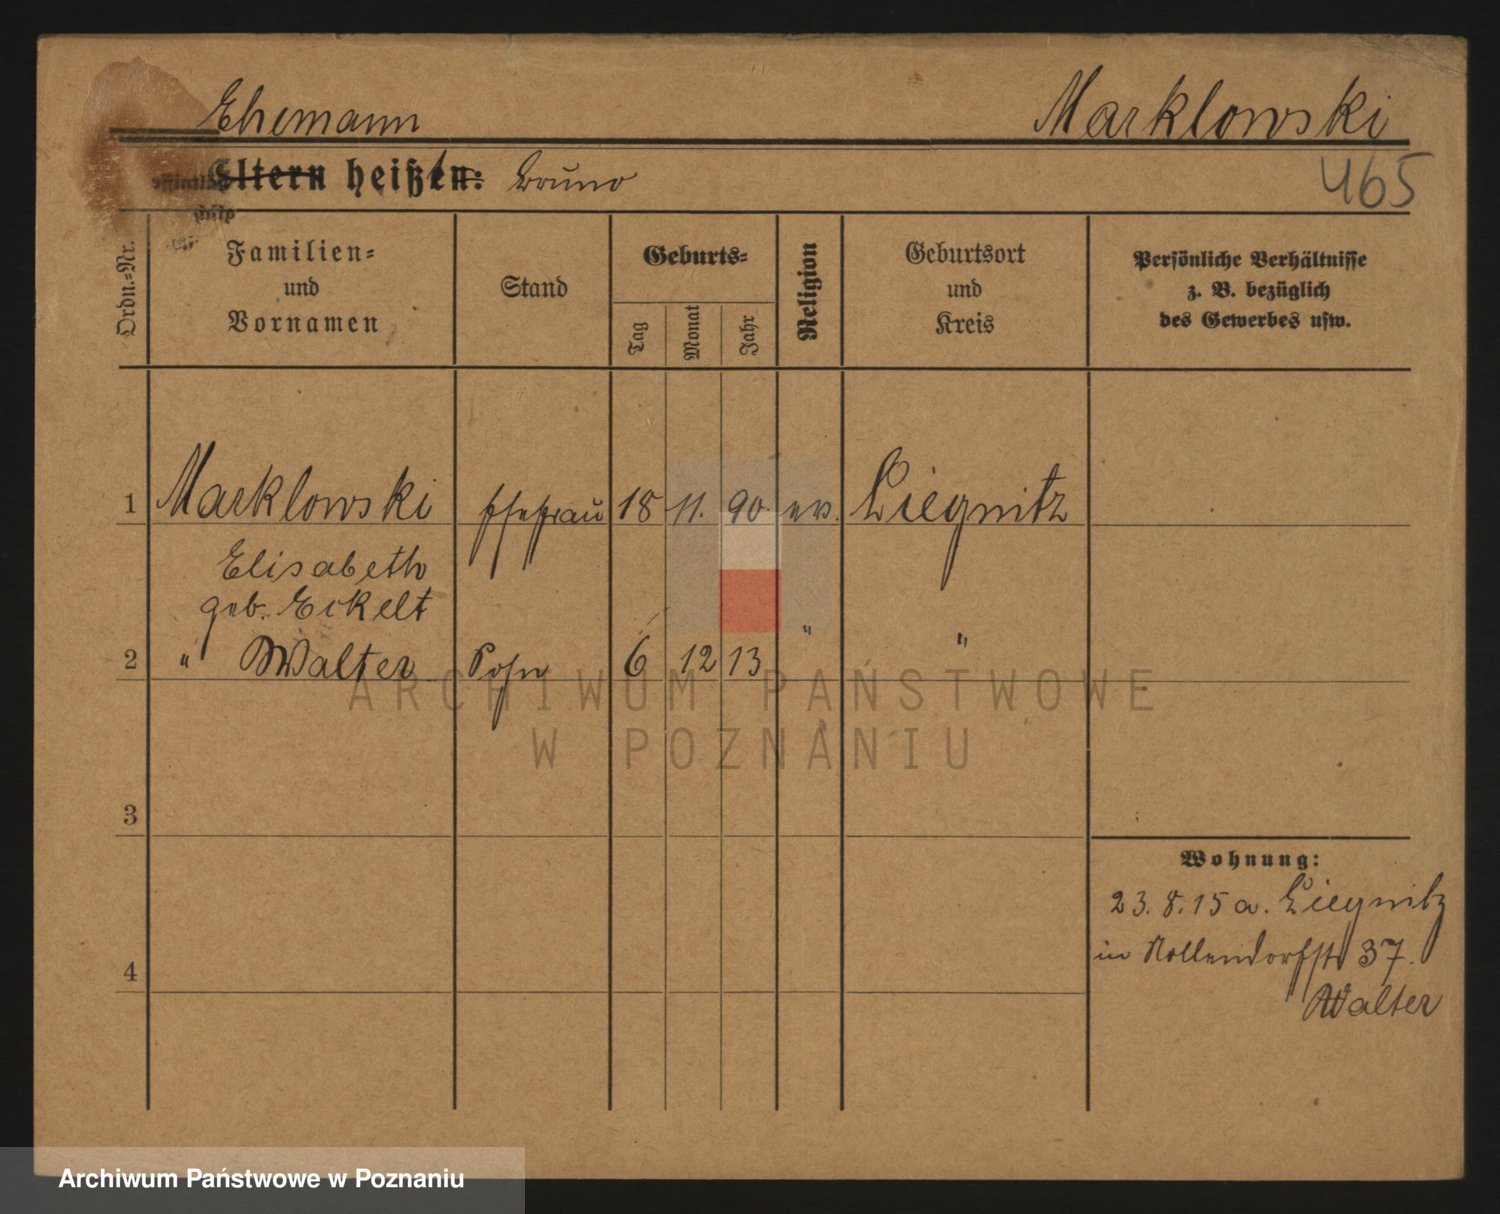 Ehemann Marklowski
Eltern heißt: Bruno 465
Ordn.=Nr. Familien= und Vornamen Stand Geburts= Tag Monat Jahr Religion Geburtsort und Kreis Persönliche Verhältnisse z. B. bezüglich des Gewerbes usw.
1 Marklowski Ehefrau 18 11. 90. ev. Liegnitz
Elisabeth
geb. Eckelt
2 " Walter Sohn 6 12 13 " "
ARCHIWUM PAŃSTWOWE
W POZNANIU
3
Wohnung:
23. 8. 15 a. Liegnitz
4 in Nollendorfstr 37.
Walter
Archiwum Państwowe w Poznaniu